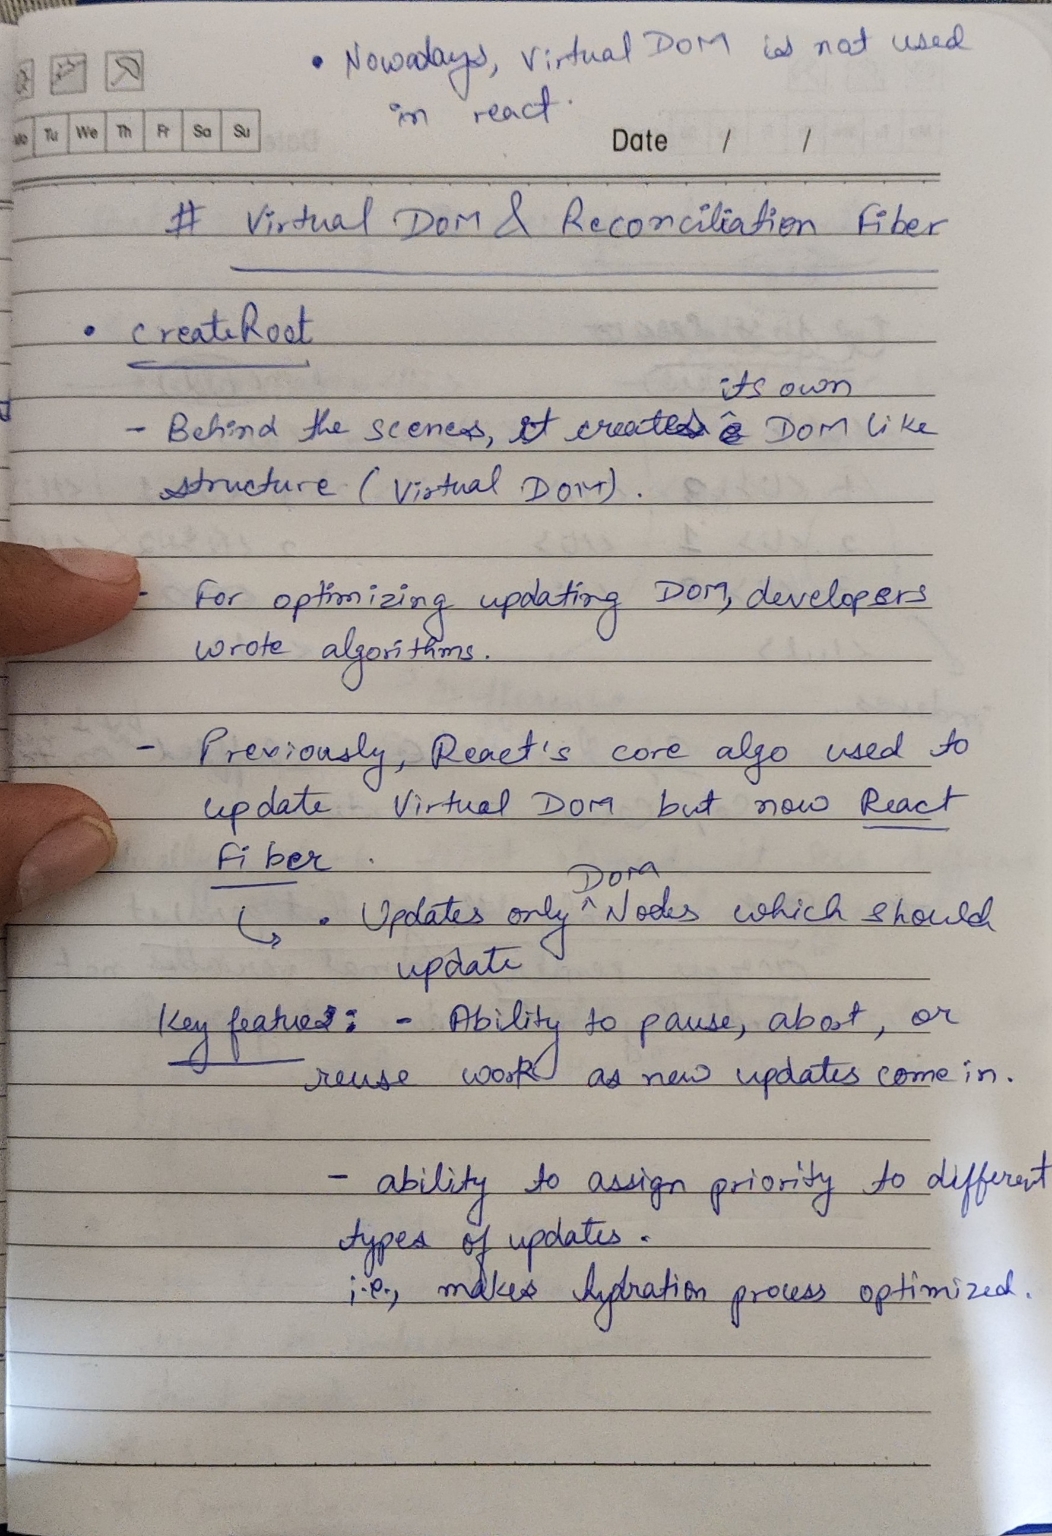 • Nowadays, Virtual DOM is not used
in react.
Tu We Th Fr Sa Su
Date / /
# Virtual DOM & Reconciliation Fiber
• createRoot
its own
- Behind the scenes, it creates ^ DOM like
structure (Virtual DOM).
- For optimizing updating DOM, developers
wrote algorithms.
- Previously, React's core algo used to
update Virtual DOM but now React
Fiber.
DOM
↳ • Updates only ^ Nodes which should
update
Key featues: - Ability to pause, abort, or
reuse work as new updates come in.
- ability to assign priority to different
types of updates.
i.e., makes hydration process optimized.